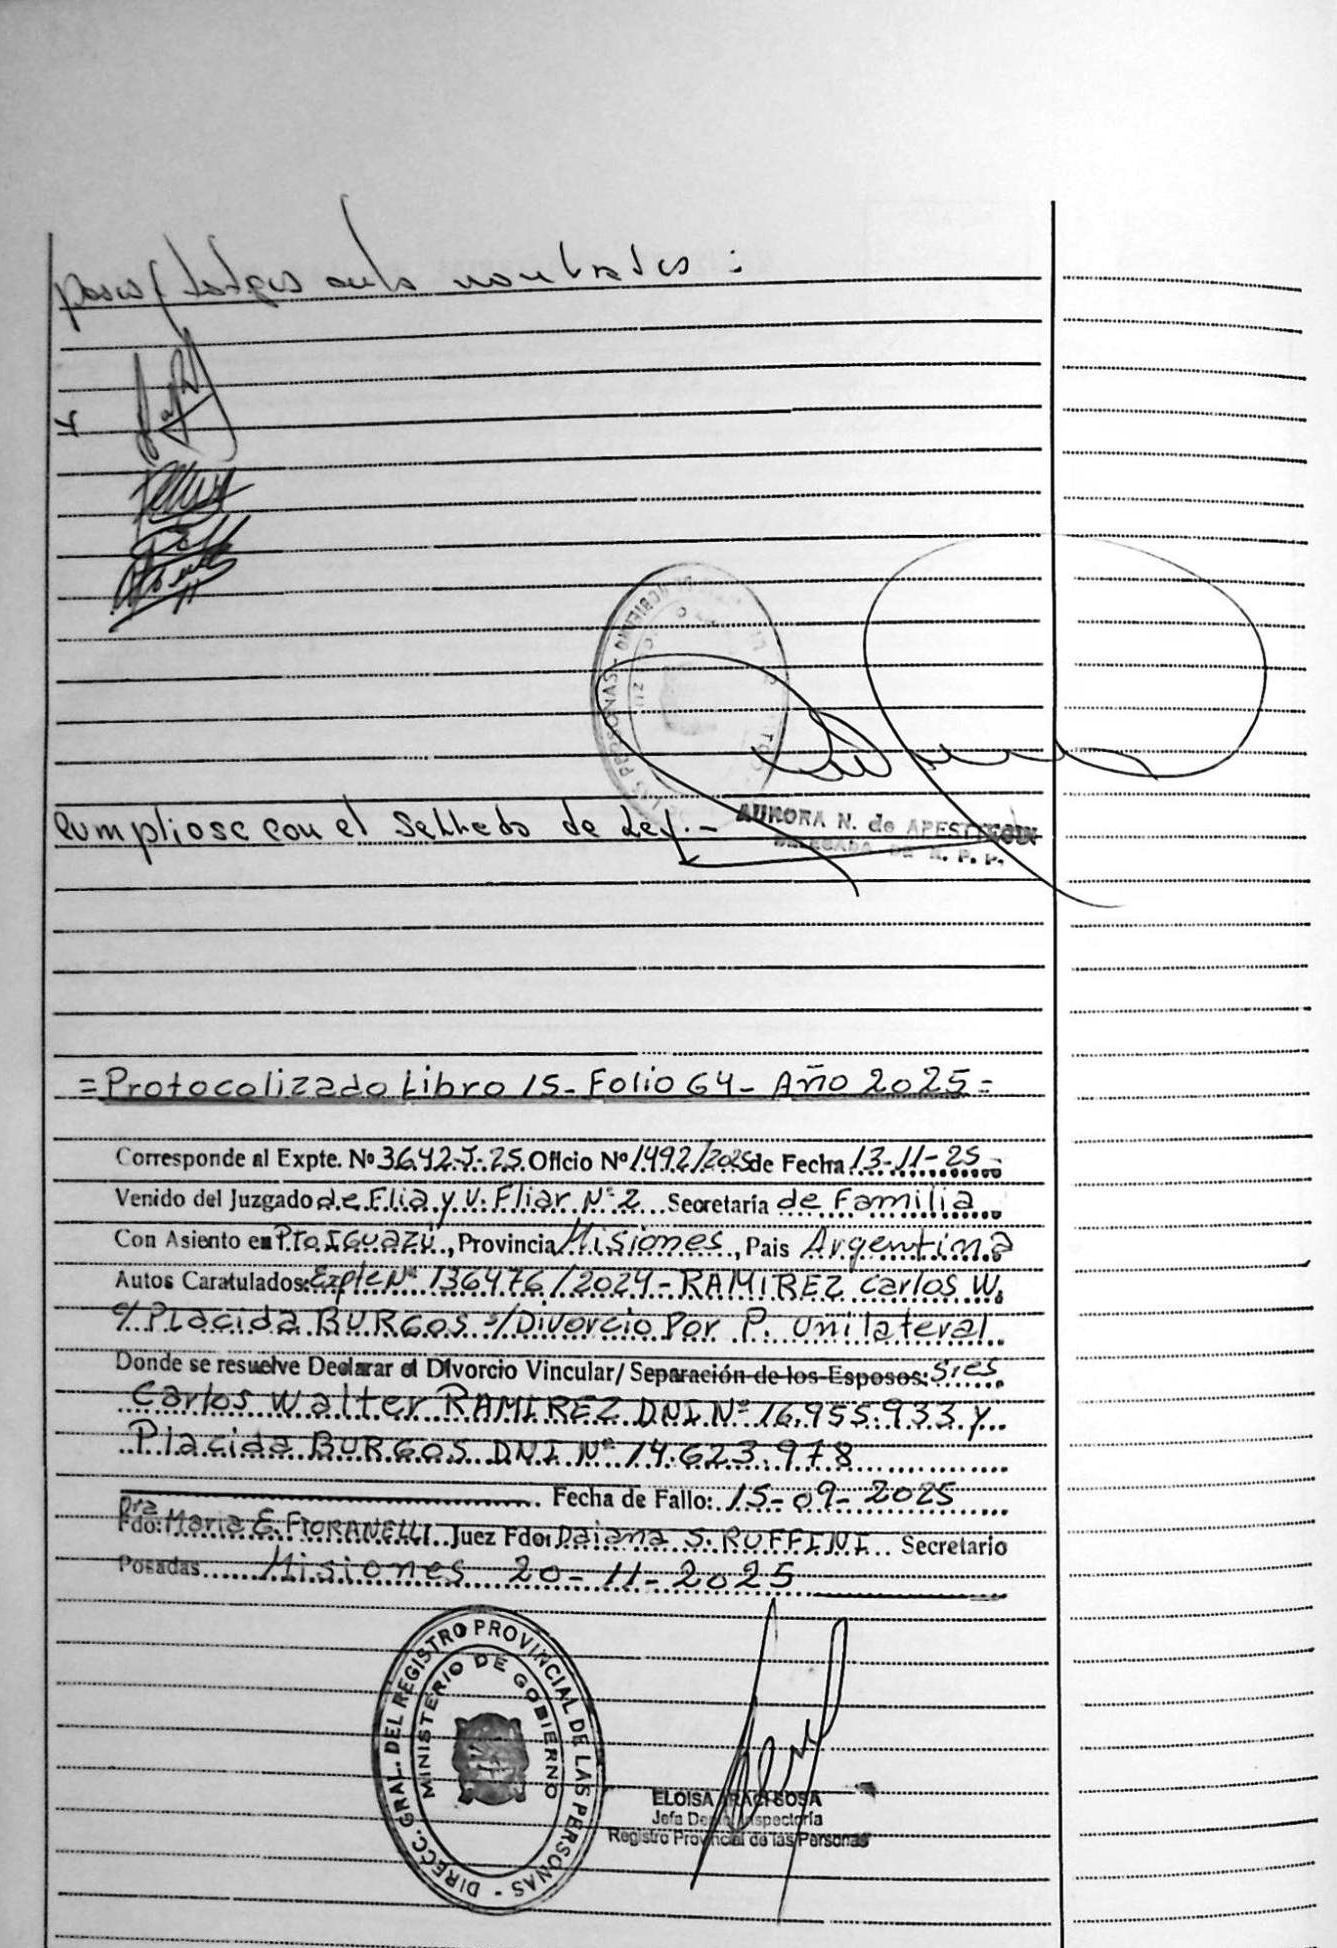 Cumpliose con el Sellado de Ley.-
AURORA N. de APESTEGUI
DELEGADA DE R. P. P.
=Protocolizado Libro 15-Folio 64-Año 2025=
Corresponde al Expte. Nº 3642-J-25. Oficio Nº 1492/2025 de Fecha 13-11-25
Venido del Juzgado de Flia. y V. Fliar Nº 2 Secretaría de Familia
Con Asiento en Pto. Iguazú, Provincia Misiones, Pais Argentina
Autos Caratulados: Expte Nº 136476/2024-RAMIREZ Carlos W.
c/ Placida BURGOS s/Divorcio Por P. Unilateral
Donde se resuelve Declarar el Divorcio Vincular/ Separación de los Esposos: Sres
Carlos Walter RAMIREZ DNI Nº 16.955.933 y
Placida BURGOS DNI Nº 14.623.978
Fecha de Fallo: 15-09-2025
Fdo: Dra Maria E. FIORANELLI Juez Fdo: Daiana S. RUFFINI Secretario
Posadas Misiones 20-11-2025
DIRECC. GRAL. DEL REGISTRO PROVINCIAL DE LAS PERSONAS -
MINISTERIO DE GOBIERNO
ELOISA IRACI SOSA
Jefa Inspectoría
Registro Provincial de las Personas